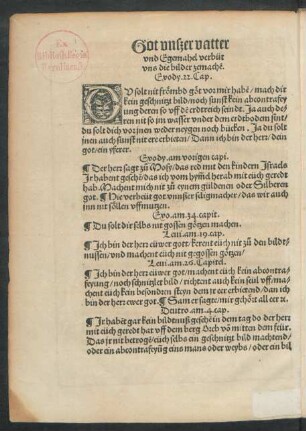 Got vnßer vatter
vnd Egemahel verbüt
vns die bilder zemachē.
Exody. 22. Cap.
DV solt nit frömbd gōt vor mir habē / mach dir
kein geschnitzt bild / noch sunst kein abcontrafey
ung deren so vff dē erdtreich sind. Ja auch de
ren nit so im wasser vnder dem erdtbodem sind /
du solt dich vor inen weder neygen noch bücken. Ja du solt
inen auch sunst nit ere erbieten / Dann ich bin der herr / dein
got / ein yfferer.
Exody. am vorigen capi.
¶ Der herr sagt zů Mosy / das red mit den kindern Israels
Ir habent gesehē das ich vom hymel herab mit euch geredt
hab. Machent mich nit zů eynem guldenen oder Silberen
got. ¶ Hie verbeüt got vnnser säligmacher / das wir auch
inn nit söllen vffmutzen.
Exo. am. 34. capit.
¶ Du solt dir selbs nit gossen götzen machen.
Leui. am. 19. cap.
¶ Ich bin der herr eüwer gott / kerent eüch nit zů den bildt-
nussen / vnd machent eüch nit gegossen götzen /
Leui. am. 26. Capitel.
¶ Ich bin der herr eüwer got / machent eüch kein abcontra-
feyung / noch schnitzlet bild / richtent auch kein seül vff / ma
chent eüch kein besondern steyn dem ir eer erbietend / dan ich
bin der herr ewer got. ¶ Sam er sagte / mir gehört all eer zů.
Deutro. am. 4. cap.
¶ Ir habēt gar kein bildtnuß gesehē in dem tag do der herr
mit eüch geredt hat vff dem berg Oreb vō mitten dem feür.
Das ir nit betrogē / eüch selbs ein geschnitzt bild machtend /
oder ein abcontrafeyūg eins mans oder weybs / oder ein bil